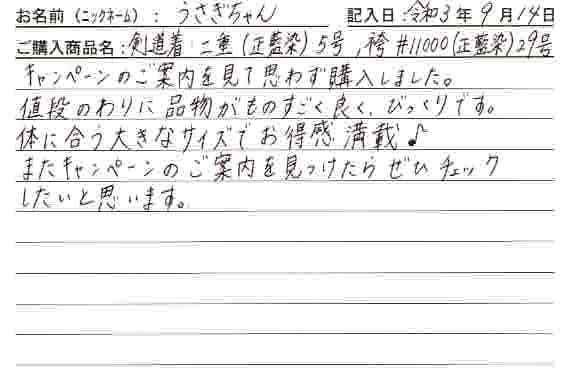 お名前（ニックネーム）：うさぎちゃん 記入日：令和3年9月14日
ご購入商品名：剣道着 二重（正藍染）5号，袴#11000（正藍染）29号
キャンペーンのご案内を見て思わず購入しました。
値段のわりに品物がものすごく良く、びっくりです。
体に合う大きなサイズでお得感満載♪
またキャンペーンのご案内を見つけたらぜひチェック
したいと思います。